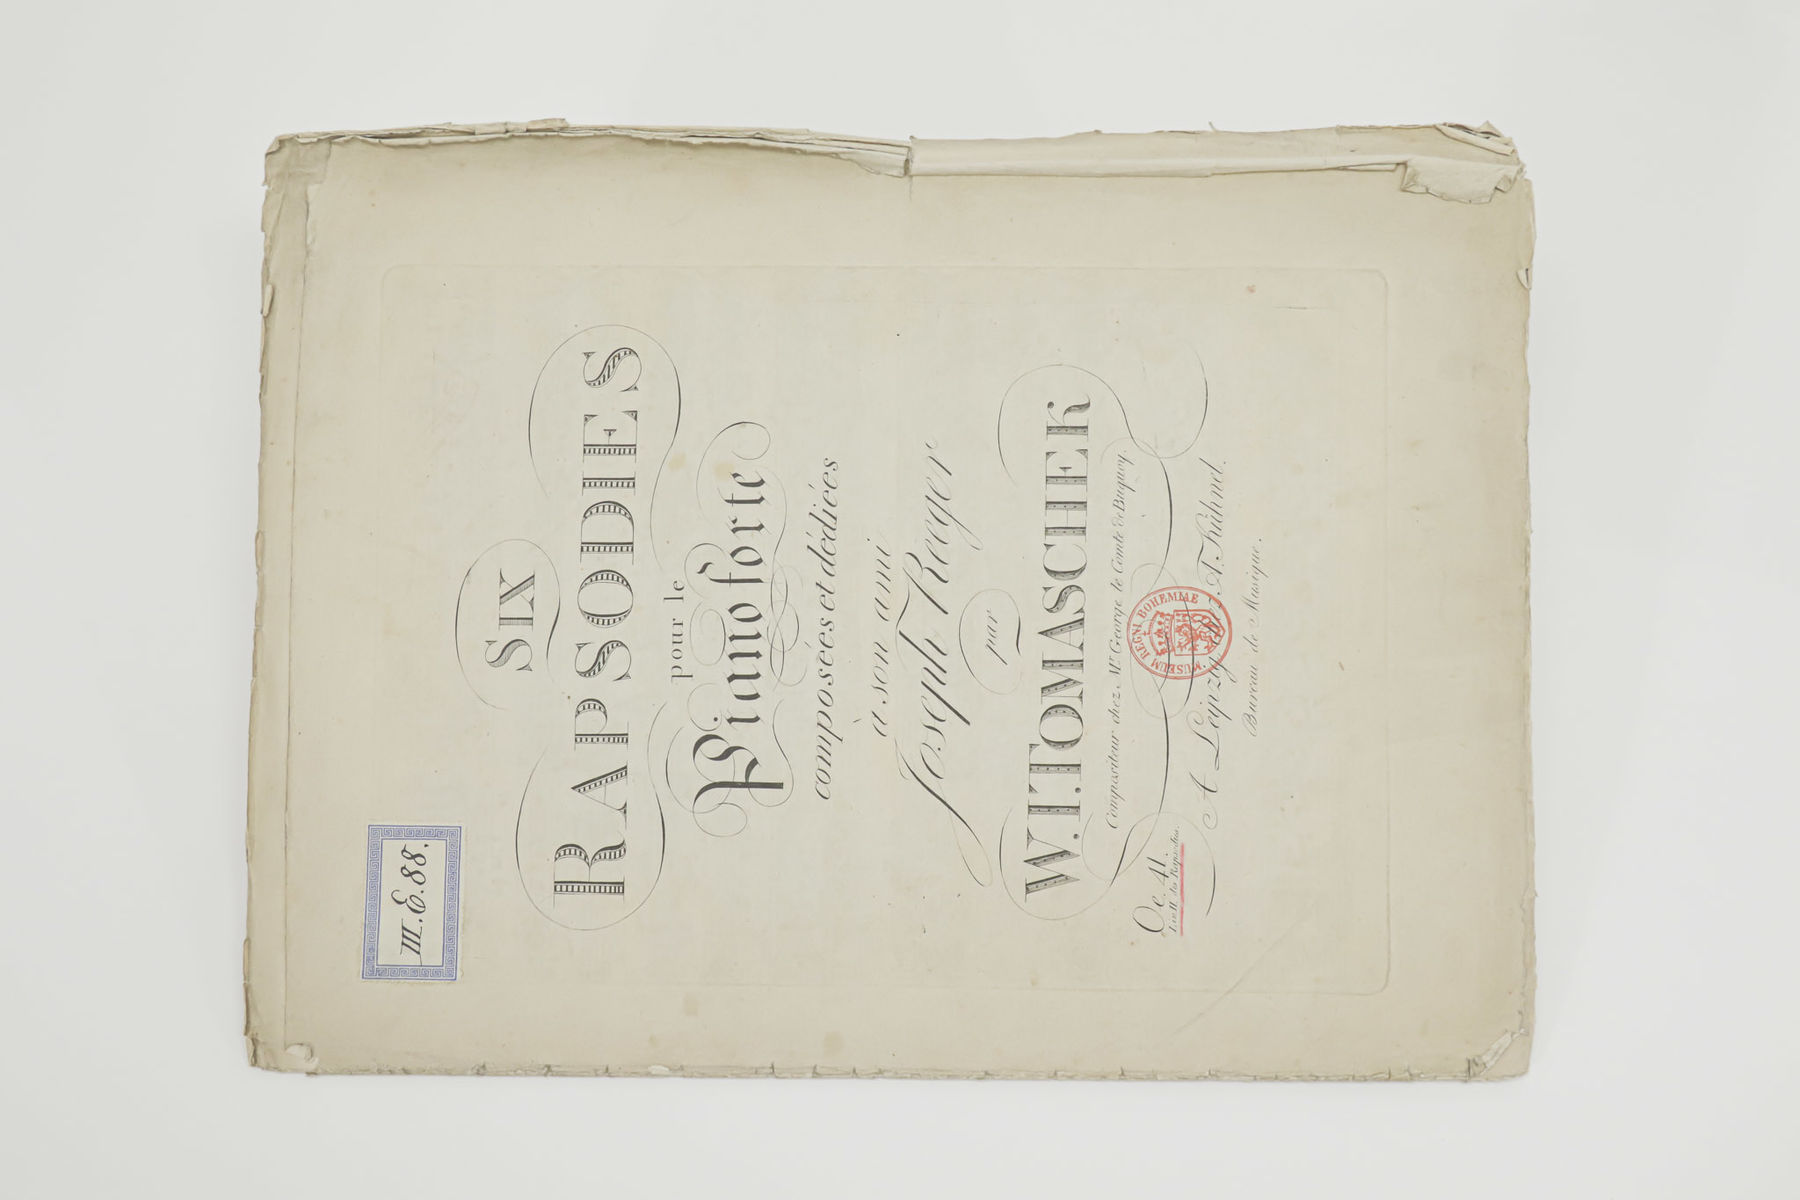 III. E. 88.
SIX
RAPSODIES
pour le
Pianoforte
composées et dédiées
à son ami
Joseph Reeger
par
W. I. TOMASCHEK
Compositeur chez Mr. George le Comte de Buquoy.
Oe. 41.
des Rapsodies.
A Leipzig, A. Kühnel.
Bureau de Musique.
MUSEUM REGNI BOHEMIAE